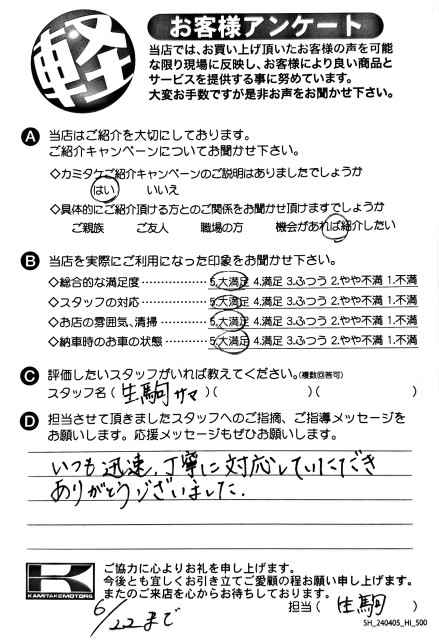 軽
お客様アンケート
当店では、お買い上げ頂いたお客様の声を可能
な限り現場に反映し、お客様により良い商品と
サービスを提供する事に努めています。
大変お手数ですが是非お声をお聞かせ下さい。
A 当店はご紹介を大切にしております。
ご紹介キャンペーンについてお聞かせ下さい。
◇カミタケご紹介キャンペーンのご説明はありましたでしょうか
はい いいえ
◇具体的にご紹介頂ける方とのご関係をお聞かせ頂けますでしょうか
ご親族 ご友人 職場の方 機会があれば紹介したい
B 当店を実際にご利用になった印象をお聞かせ下さい。
◇総合的な満足度 ・・・・・・・・・・・ 5.大満足 4.満足 3.ふつう 2.やや不満 1.不満
◇スタッフの対応 ・・・・・・・・・・・ 5.大満足 4.満足 3.ふつう 2.やや不満 1.不満
◇お店の雰囲気、清掃 ・・・・・・・ 5.大満足 4.満足 3.ふつう 2.やや不満 1.不満
◇納車時のお車の状態 ・・・・・・・ 5.大満足 4.満足 3.ふつう 2.やや不満 1.不満
C 評価したいスタッフがいれば教えてください。(複数回答可)
スタッフ名 ( 生駒サマ )( )( )
D 担当させて頂きましたスタッフへのご指摘、ご指導メッセージを
お願いします。応援メッセージもぜひお願いします。
いつも迅速、丁寧に対応していただき
ありがとうございました。
K
KAMITAKEMOTORS
ご協力に心よりお礼を申し上げます。
今後とも宜しくお引き立てご愛顧の程お願い申し上げます。
またのご来店を心からお待ちしております。
6/22まで
担当 ( 生駒 )
SH_240405_HI_500